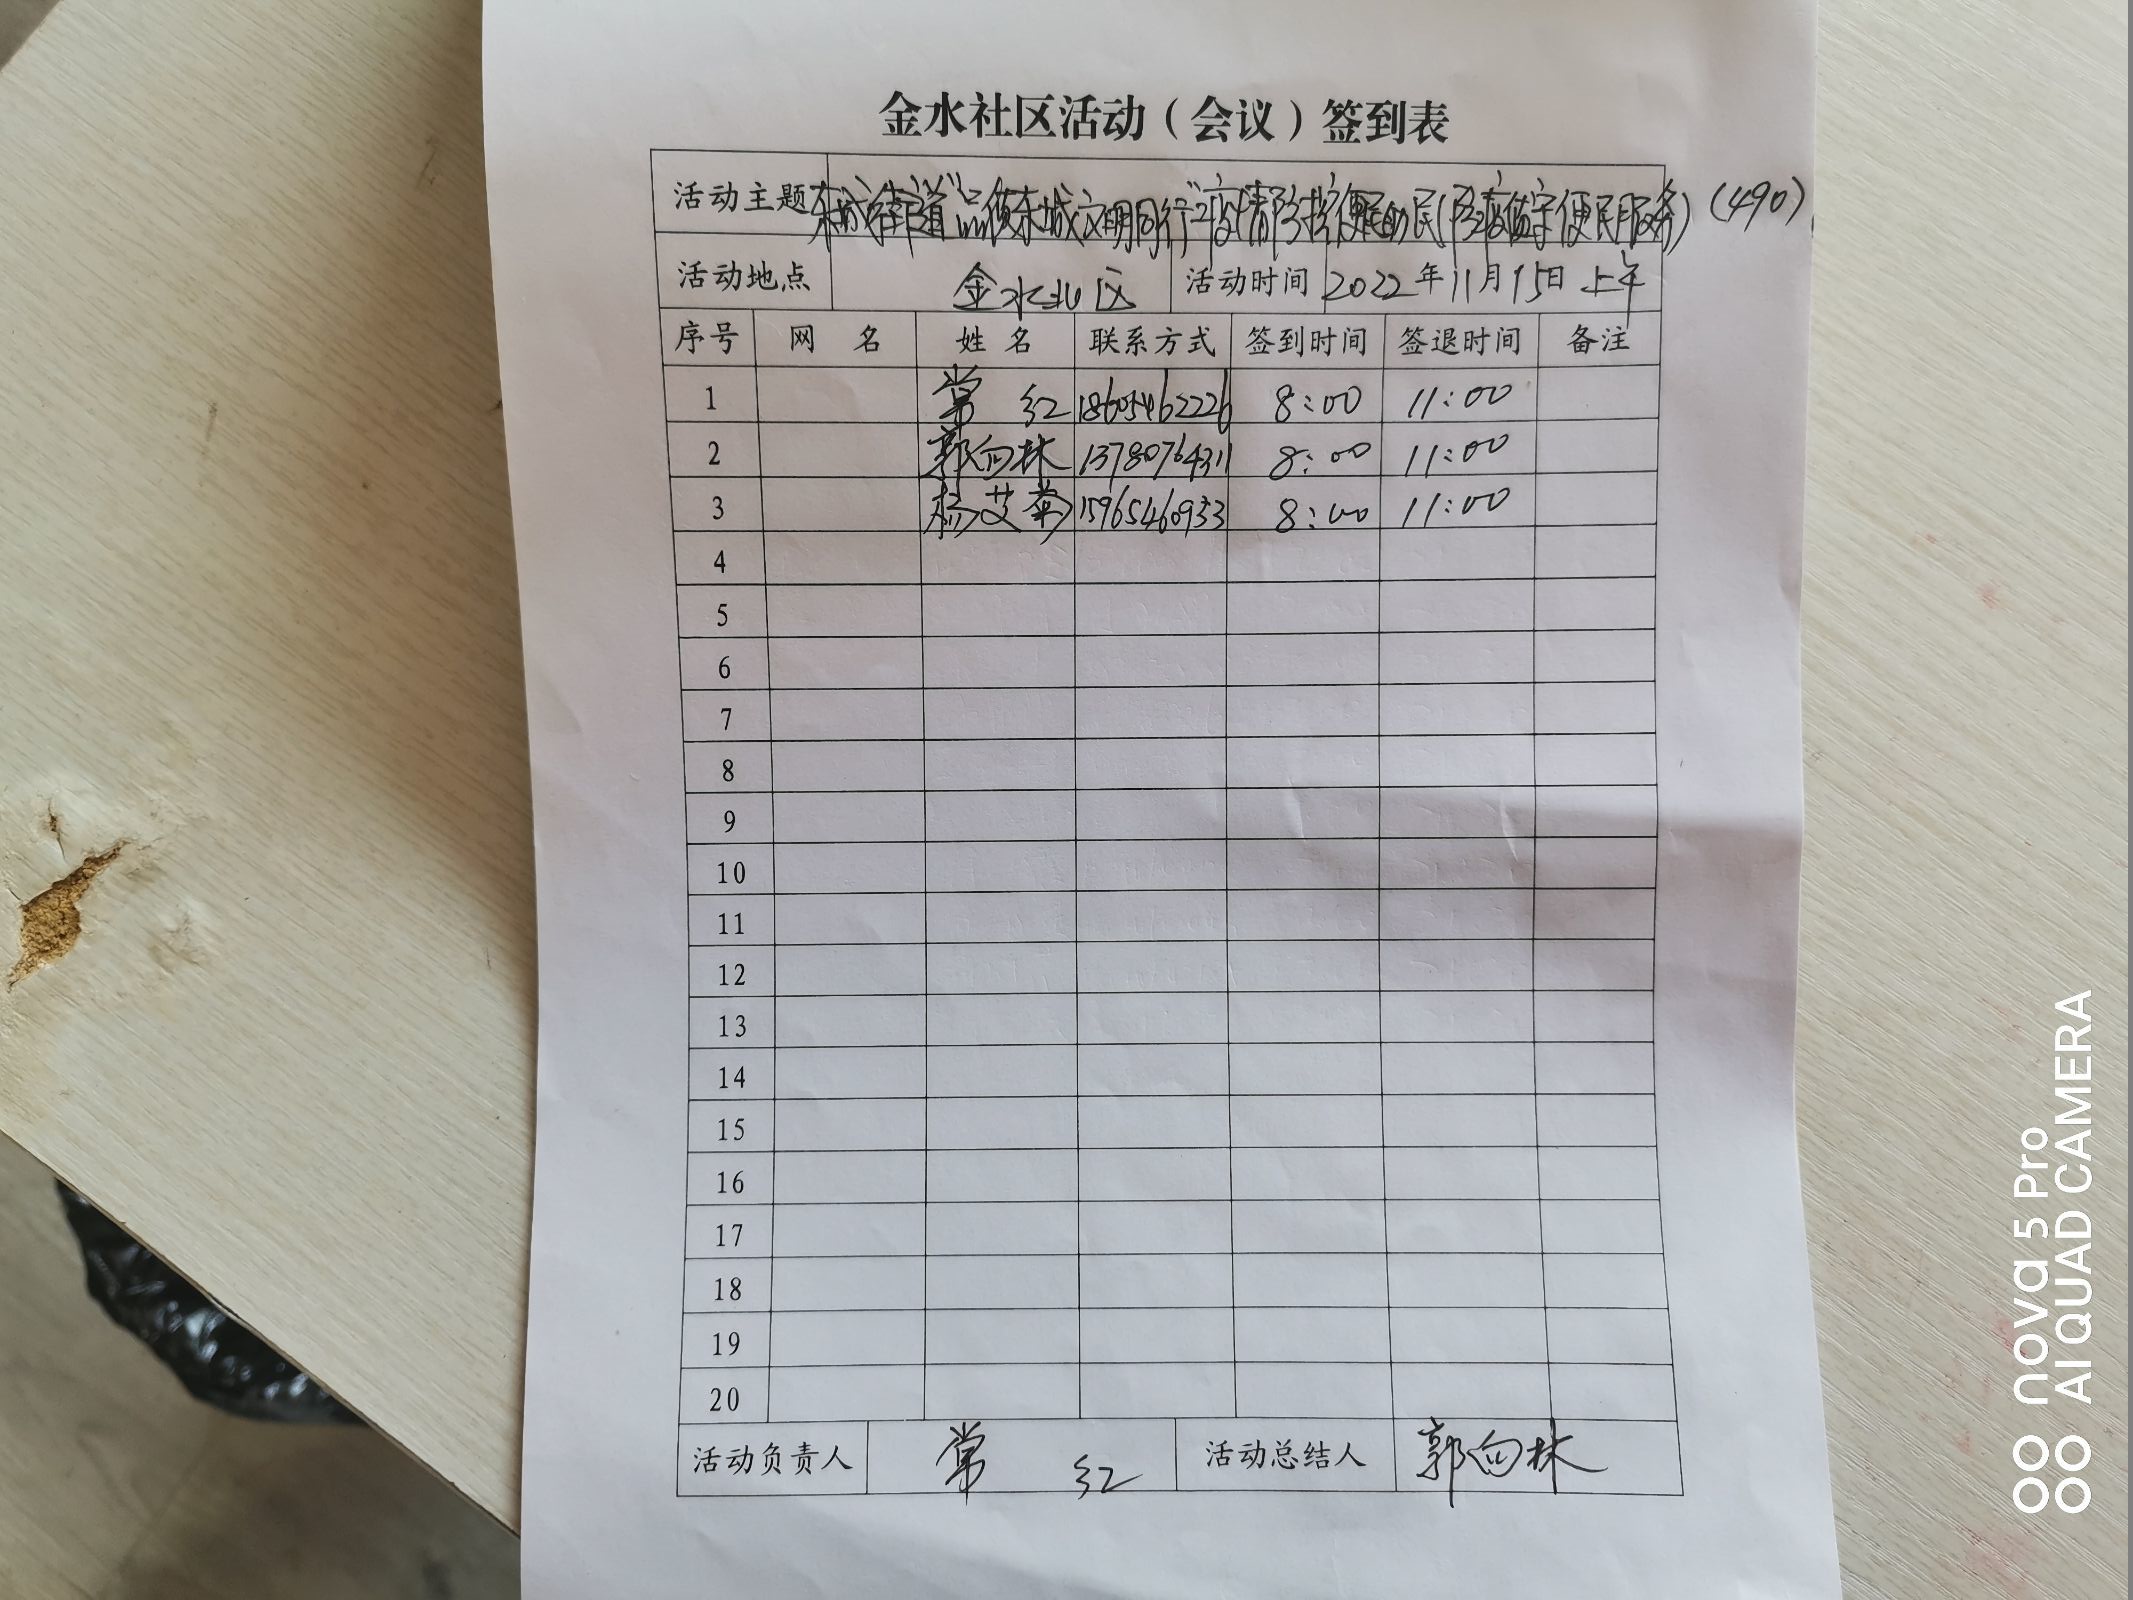 金水社区活动（会议）签到表
活动主题 东城街道"品质东城文明同行"疫情防控便民助民(防疫值守便民服务)(490)
活动地点 金水北区 活动时间 2022年11月15日上午
序号 网 名 姓 名 联系方式 签到时间 签退时间 备注
1 常 红 18605462226 8:00 11:00
2 郭向林 13780764311 8:00 11:00
3 杨艾菊 15965460933 8:00 11:00
4
5
6
7
8
9
10
11
12
13
14
15
16
17
18
19
20
活动负责人 常 红 活动总结人 郭向林
nova 5 Pro
AI QUAD CAMERA